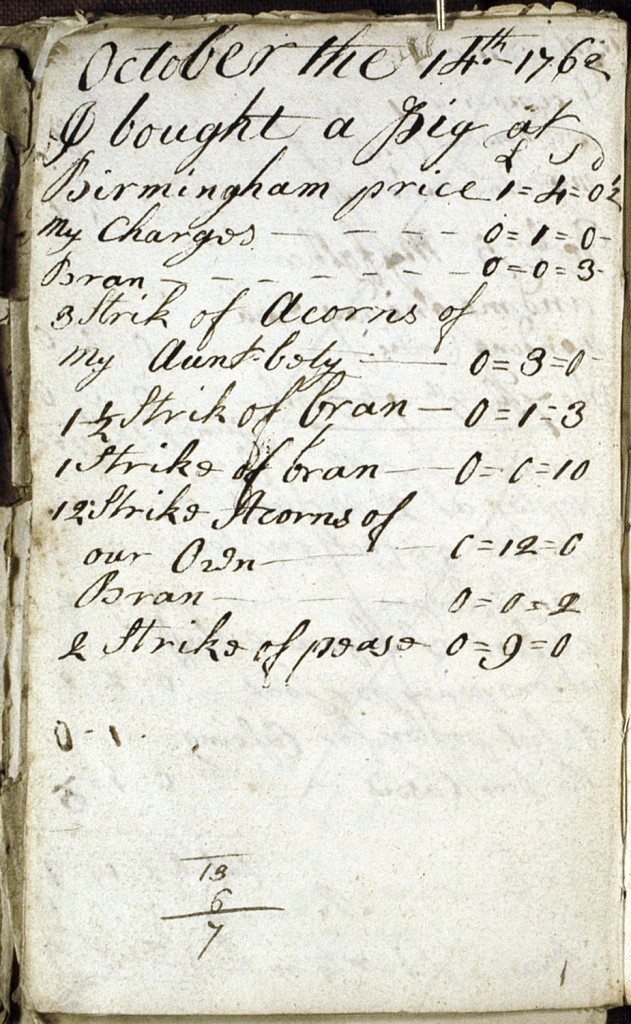 October the 14th 1762
I bought a Pig at
£ s d
Birmingham price 1=4=0½
My Charges — — — — 0=1=0
Bran — — — — — — 0=0=3
3 Strik of Acorns of
my Aunt bety — 0=3=0
1½ Strik of bran — 0=1=3
1 Strike of bran — 0=0=10
12 Strike Acorns of
our Own — 0=12=0
Bran — 0=0=2
2 Strike of pease 0=9=0
0-1
13
6
7